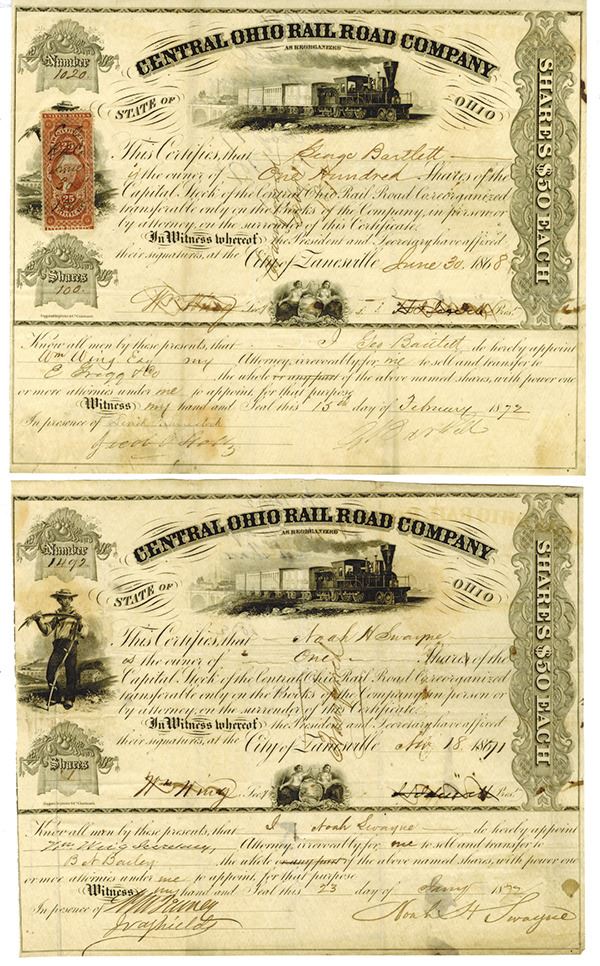 CENTRAL OHIO RAIL ROAD COMPANY
AS REORGANIZED
Number
1020
STATE OF OHIO
SHARES $50 EACH
This Certifies, that George Bartlett
is the owner of One Hundred Shares of the
Capital Stock of the Central Ohio Rail Road Co. reorganized
transferable only on the Books of the Company, in person or
by attorney, on the surrender of this Certificate.
In Witness whereof the President and Secretary have affixed
their signatures, at the City of Zanesville June 30 1868
25
25
Shares
100
Wm Wing Sec.y
Pres.t
Know all men by these presents, that I Geo Bartlett do hereby appoint
Wm Wing Esq my Attorney, irrevocably, for me to sell and transfer to
the whole or any part of the above named shares, with power one
or more attorneys under me to appoint, for that purpose
Witness my hand and Seal this 15th day of February 1872
In presence of
G Bartlett
CENTRAL OHIO RAIL ROAD COMPANY
AS REORGANIZED
Number
1492
STATE OF OHIO
SHARES $50 EACH
This Certifies, that Noah H Swayne
is the owner of One Shares of the
Capital Stock of the Central Ohio Rail Road Co. reorganized
transferable only on the Books of the Company, in person or
by attorney, on the surrender of this Certificate.
In Witness whereof the President and Secretary have affixed
their signatures, at the City of Zanesville Nov 18 1871
Shares
1
Wm Wing Sec.y
Pres.t
Know all men by these presents, that I Noah Swayne do hereby appoint
Wm Wing Secretary, Attorney, irrevocably, for me to sell and transfer to
the whole or any part of the above named shares, with power one
or more attorneys under me to appoint, for that purpose
Witness my hand and Seal this 23 day of Jany 1877
In presence of
Noah H Swayne